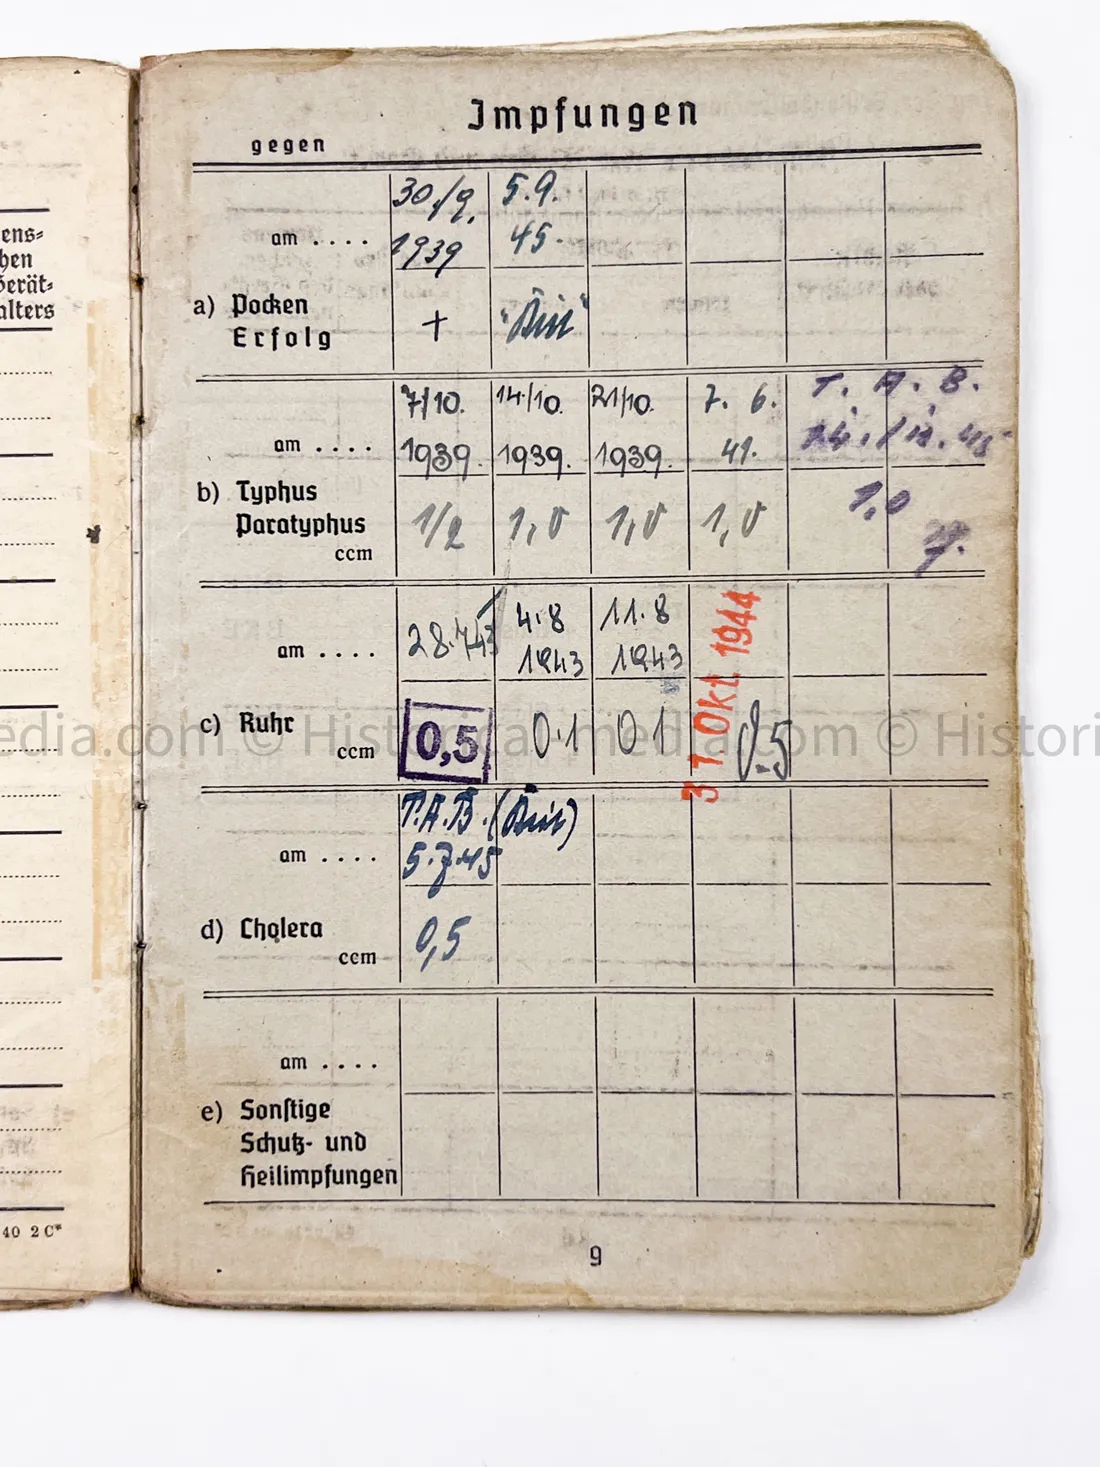 ens=
hen
Gerät=
alters
40 2 C*
Impfungen
gegen
30./9. 5.9.
am . . . . 1939 45.
a) Pocken
Erfolg +
7/10. 14/10. 21/10. 7. 6. T. A. B.
am . . . . 1939. 1939. 1939. 41.
b) Typhus
Paratyphus 1/2 1,0 1,0 1,0 1,0
ccm
28.7.43 4.8 11.8 31. Okt. 1944
am . . . . 1943 1943
c) Ruhr 0,5 0.1 01 0.5
ccm
T.A.B.
am . . . . 5.7.45
d) Cholera 0,5
ccm
am . . . .
e) Sonstige
Schutz- und
Heilimpfungen
9
edia.com © Historical-media.com © Histori